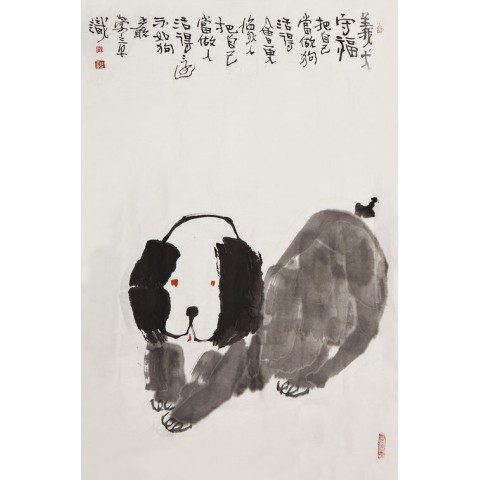 義犬
守福
把自己
當做狗
活得
會更
把自己
當做人
活得還
不如狗
識